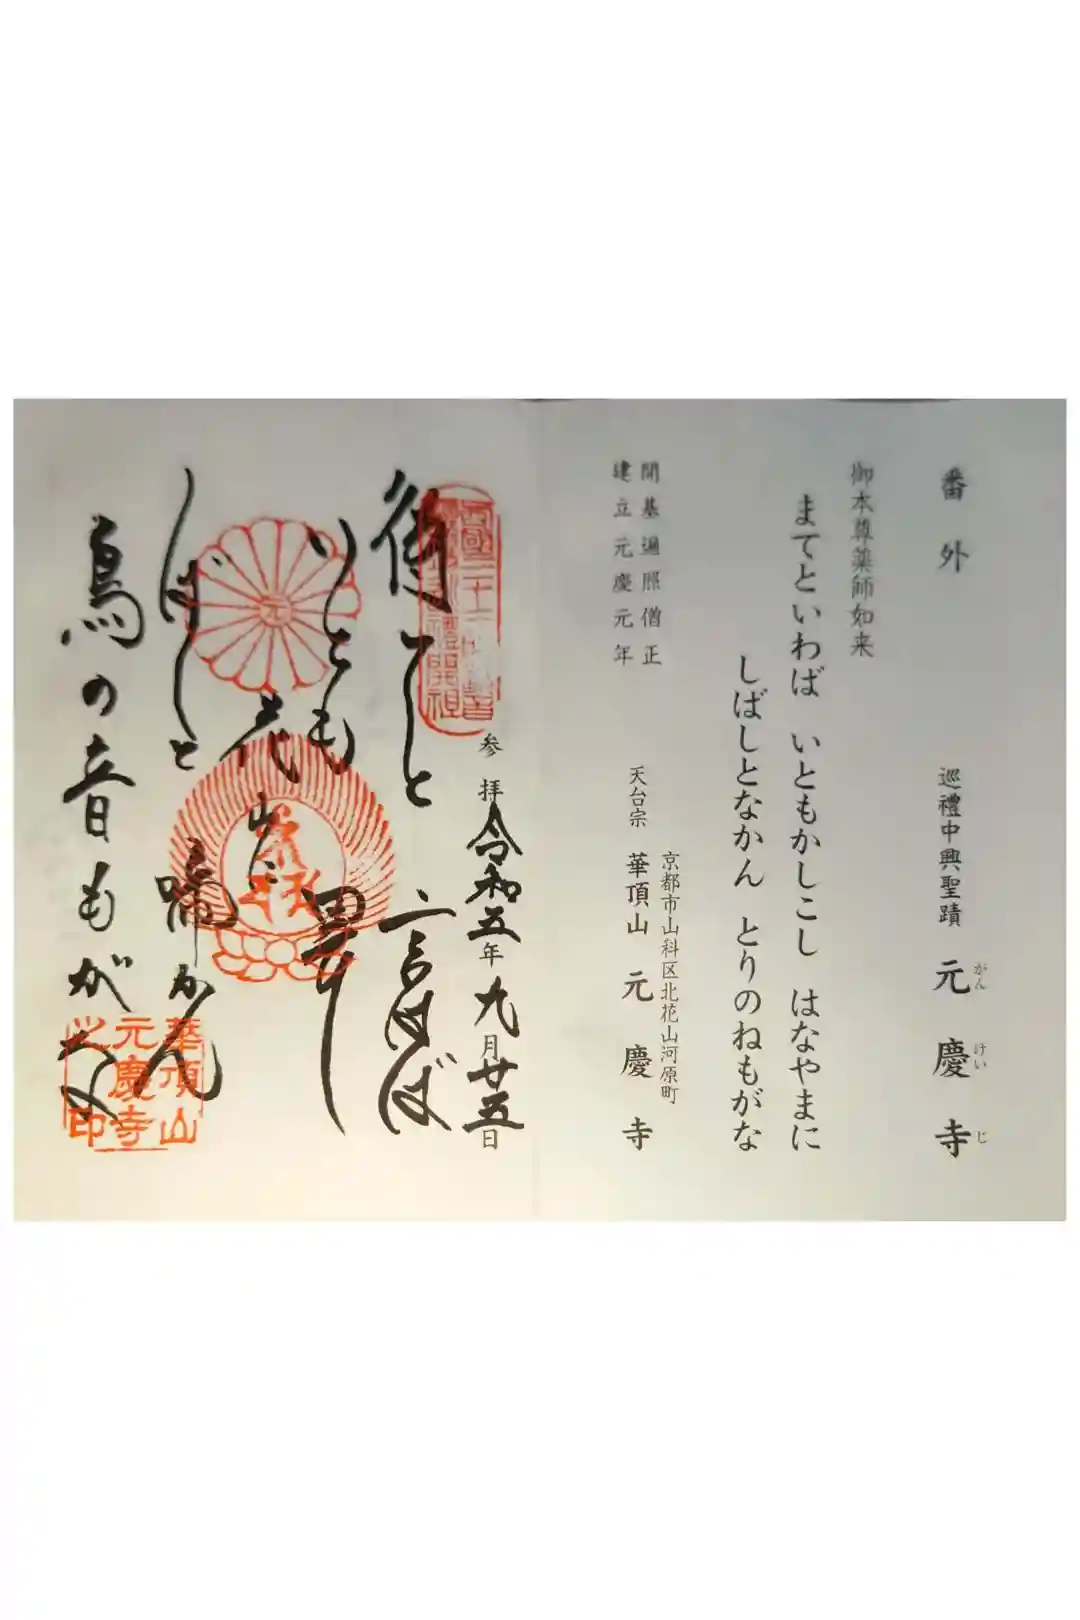 番外
巡禮中興聖蹟 元慶寺
がんけいじ
御本尊薬師如来
まてといわば いともかしこし はなやまに
しばしとなかん とりのねもがな
開基遍照僧正
建立元慶元年
京都市山科区北花山河原町
天台宗 華頂山 元慶寺
参拝 令和五年九月廿五日
待てと言はば
いとも畏し
花山に
しばしと啼かん
鳥の音もがな
元
華頂山
元慶寺
之印